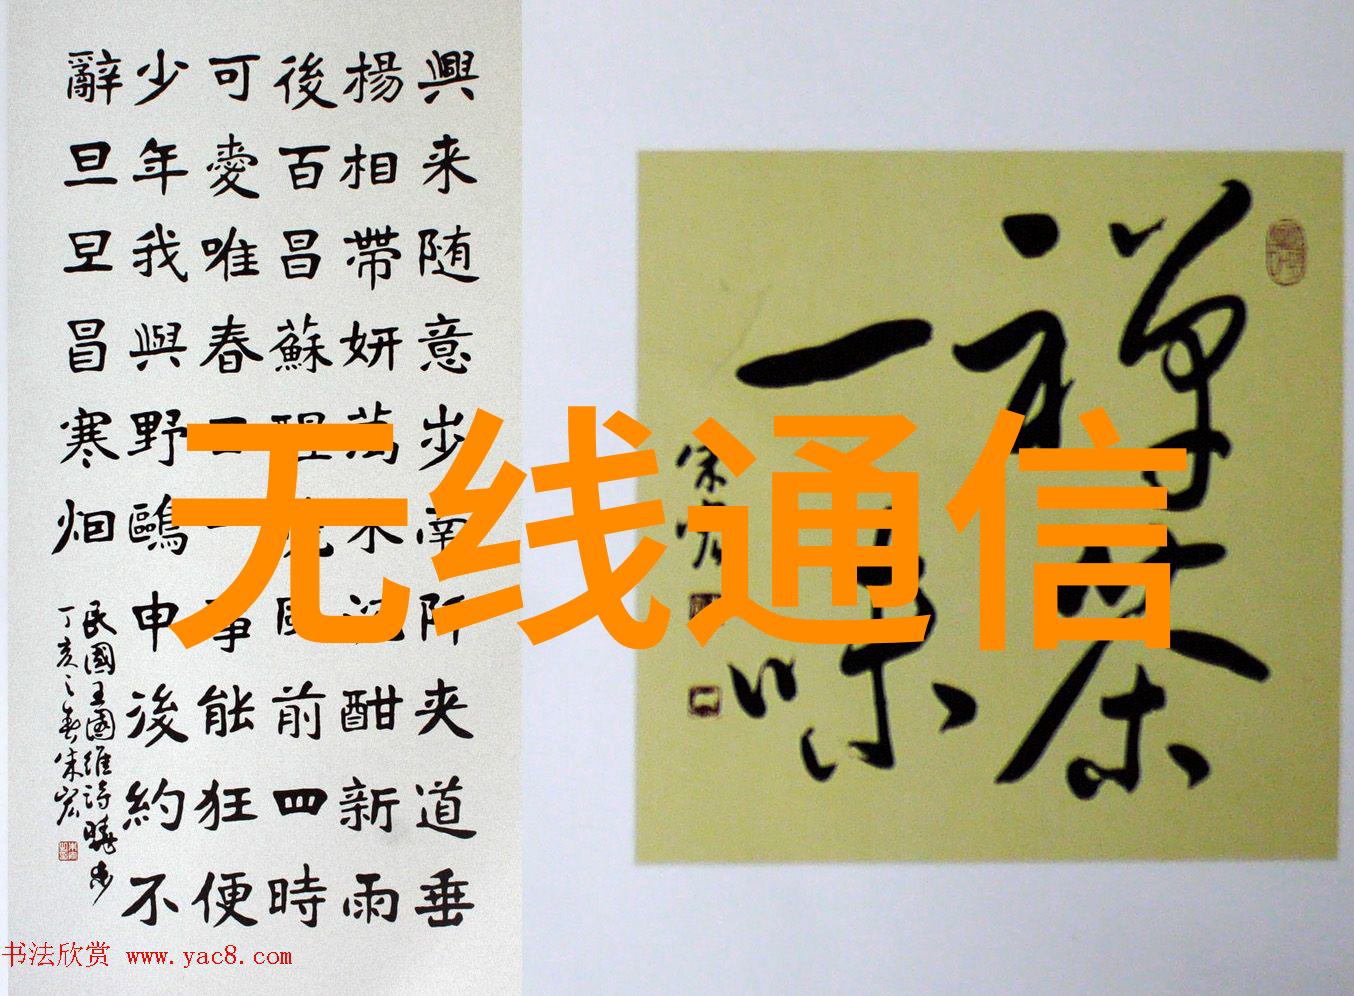 興来随意步南阡夹道垂
楊相帶妍萬木沉酣新雨
後百昌蘇醒曉風前四時
可愛唯春日一事能狂便
少年我與野鷗申後約不
辭旦旦冒寒烟
民國王國維詩曉步
丁亥之春朱宏
禪茶
一味
无线通信
书法欣赏 www.yac8.com